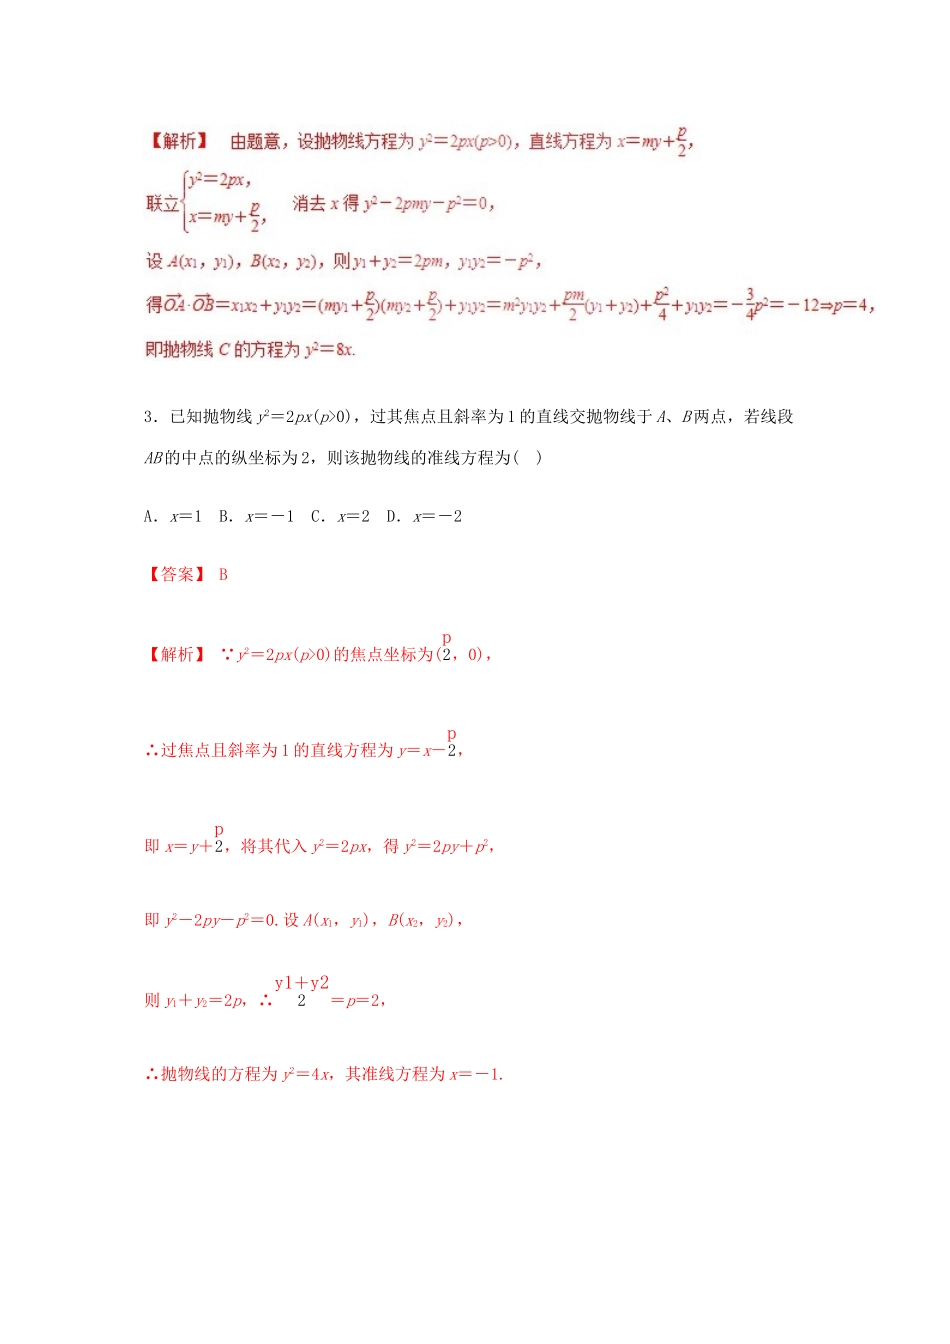 【解析】 由题意，设抛物线方程为 y²＝2px(p>0)，直线方程为 x＝my＋p/2，
联立{y²＝2px，x＝my＋p/2， 消去 x 得 y²－2pmy－p²＝0，
设 A(x₁，y₁)，B(x₂，y₂)，则y₁＋y₂＝2pm，y₁y₂＝－p²，
得OA→·OB→＝x₁x₂＋y₁y₂＝(my₁＋p/2)(my₂＋p/2)＋y₁y₂＝m²y₁y₂＋pm/2(y₁＋y₂)＋p²/4＋y₁y₂＝－3/4p²＝－12⇒p＝4，
即抛物线 C 的方程为 y²＝8x.
3．已知抛物线 y²＝2px(p>0)，过其焦点且斜率为 1 的直线交抛物线于 A、B 两点，若线段
AB 的中点的纵坐标为 2，则该抛物线的准线方程为( )
A．x＝1 B．x＝－1 C．x＝2 D．x＝－2
【答案】 B
【解析】 ∵y²＝2px(p>0)的焦点坐标为(p/2，0)，
∴过焦点且斜率为 1 的直线方程为 y＝x－p/2，
即 x＝y＋p/2，将其代入 y²＝2px，得 y²＝2py＋p²，
即 y²－2py－p²＝0.设 A(x₁，y₁)，B(x₂，y₂)，
则 y₁＋y₂＝2p，∴y1＋y2/2＝p＝2，
∴抛物线的方程为 y²＝4x，其准线方程为 x＝－1.